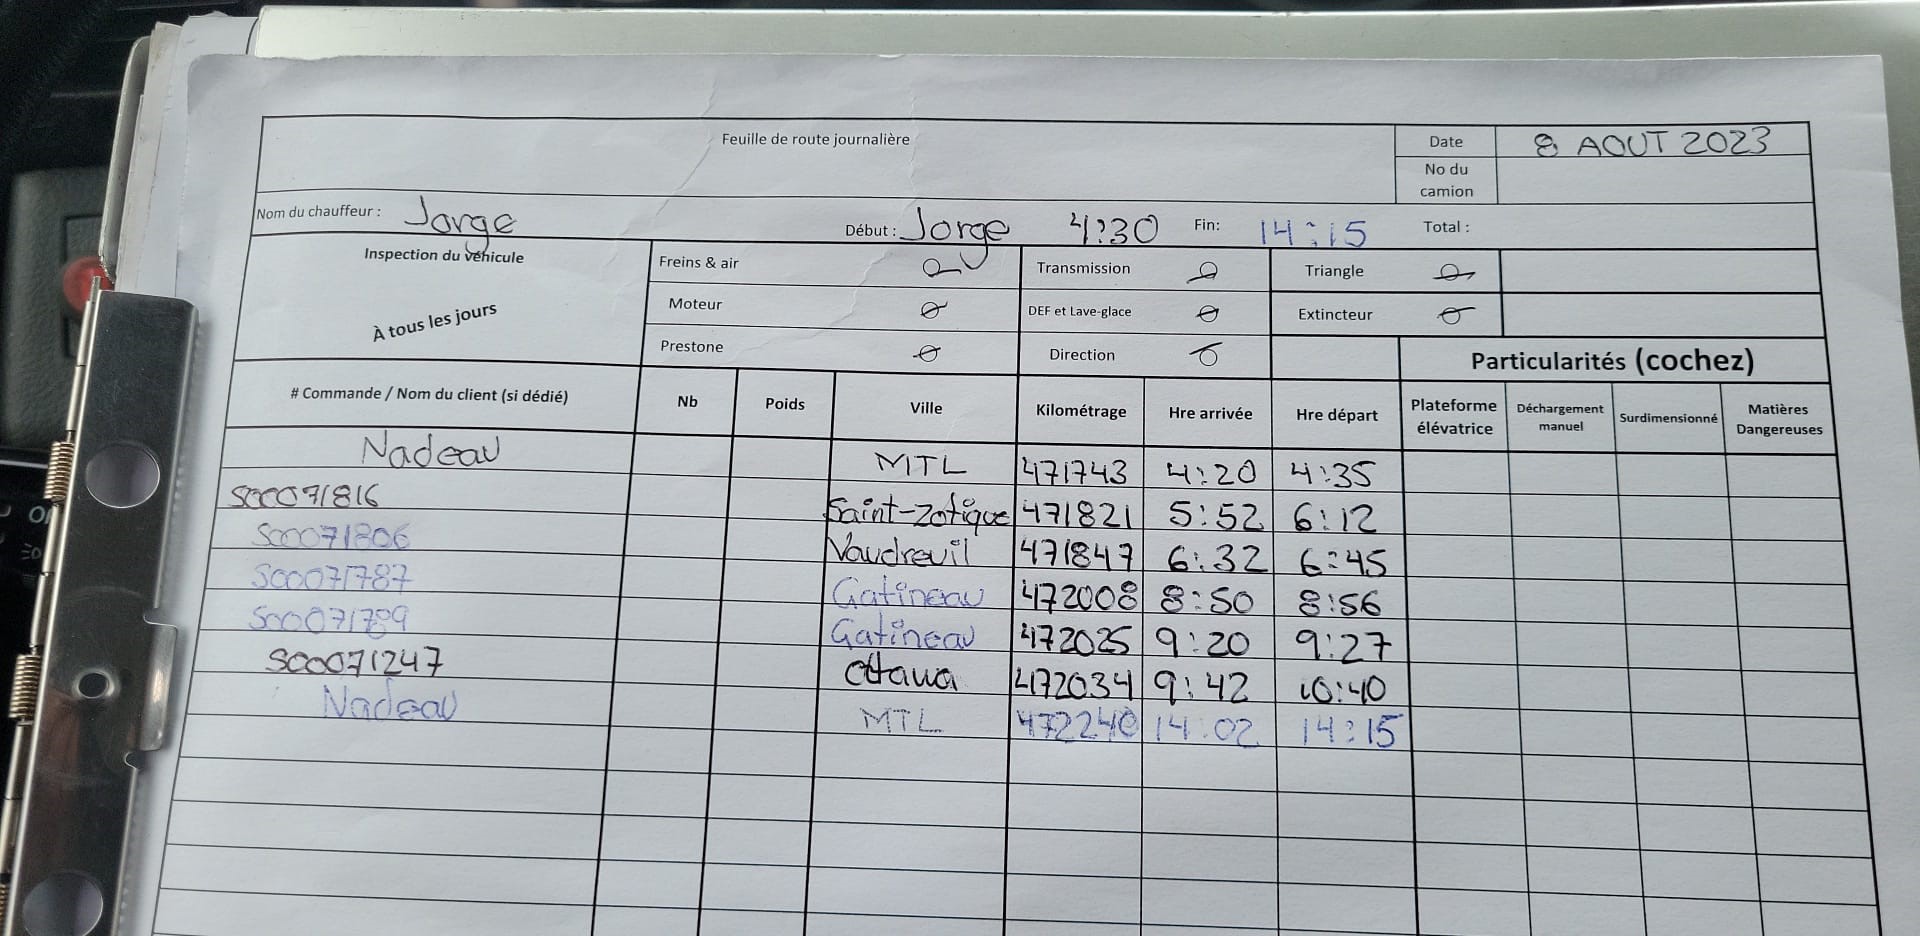 Feuille de route journalière Date 8 AOUT 2023
No du camion
Nom du chauffeur : Jorge Début : Jorge 4:30 Fin: 14:15 Total :
Inspection du véhicule Freins & air Transmission Triangle
À tous les jours Moteur DEF et Lave-glace Extincteur
Prestone Direction Particularités (cochez)
# Commande / Nom du client (si dédié) Nb Poids Ville Kilométrage Hre arrivée Hre départ Plateforme élévatrice Déchargement manuel Surdimensionné Matières Dangereuses
Nadeau MTL 471743 4:20 4:35
SO0071816 Saint-Zotique 471821 5:52 6:12
SO0071806 Vaudreuil 471847 6:32 6:45
SO0071787 Gatineau 472008 8:50 8:56
SO0071789 Gatineau 472025 9:20 9:27
SO0071247 Ottawa 472034 9:42 10:40
Nadeau MTL 472240 14:02 14:15